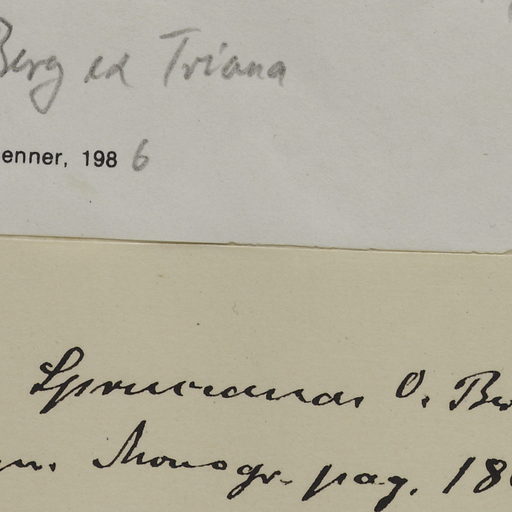 Berg ex Triana
enner, 1986
Spruceana, O. Be
yn. Monogr. pag. 18